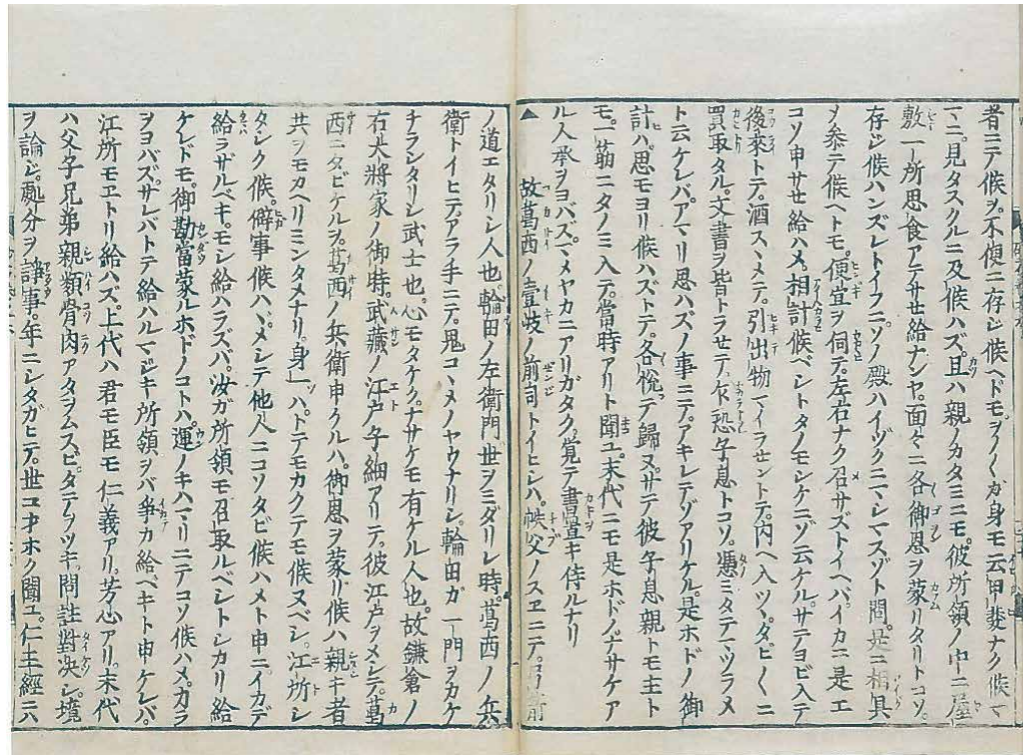 者ニテ候ヲ不便ニ存ジ候ヘドモヲノ〱カ身モ云甲斐ナク候マ
一ニ見タスクルニ及候ハズ且ハ親ノカタミニモ彼所領ノ中ニ屋
敷一所思食アテサセ給ナンヤ面々ニ各御恩ヲ蒙リタリトコソ
存ジ候ハンズレトイフニソノ殿ハイヅクニマシマスゾト問是ニ相具
メ参テ候ヘトモ便宜ヲ伺テ左右ナク召サズトイヘバイカニ是エ
コソ申サせ給ハメ相計候ベシトタノモシケニゾ云ケルサテヨビ入テ
後來トテ酒スヽメテ引出物マイラセントテ内ヘ入ツヽタビ〱ニ
買取タル文書ヲ皆トラせテ恐子息トコソ憑ミタテマツラメ
ト云ケレバアマリ思ハズノ事ニテアキレテゾアリケル是ホドノ御
計ハ思モヨリ候ハズトテ各悦テ歸ヌサテ彼子息親トモ主ト
モ一筋ニタノミ入テ當時アリト聞ユ末代ニモ是ホドノナサケア
ル人承ヲヨバズマメヤカニアリガタク覚テ書置キ侍ルナリ
▲故葛西ノ壹岐ノ前司トイヒシハ秩父ノスヱニテ
ノ道エタリシ人也輪田ノ左衛門世ヲミダリシ時葛西ノ兵
衛トイヒテアラ手ニテ鬼コヽメノヤウナリシ輪田ガ一門ヲカケ
ナラシタリシ武士也心モタケクナサケモ有ケル人也故鎌倉ノ
右大將家ノ御時武藏ノ江戸子細アリテ彼江戸ヲメシテ葛
西ニタビケルヲ葛西ノ兵衛申クルハ御恩ヲ蒙リ候ハ親キ者
共ヲモカヘリミンタメナリ身一ツハトテモカクテモ候ヌベシ江所シ
タシク候僻事候ハヾメシテ他人ニコソタビ候ハメト申ニイカデ
給ラザルベキモシ給ハラズバ汝ガ所領モ召取ルベシトシカリ給
ケレドモ御勘當蒙ルホドノコトハ運ノキハマリニテコソ候ハメカラ
ヲヨバズサレバトテ給ハルマジキ所領ヲバ爭カ給ベキト申ケレバ
江所モヱトリ給ハズ上代ハ君モ臣モ仁義アリ芳心アリ末代
ハ父子兄弟親類骨肉アタラムスビタテヲツキ問註對决シ境
ヲ論ジ處分ヲ諍事年ニシタガヒテ世ニオホク聞ユ仁王經ニハ